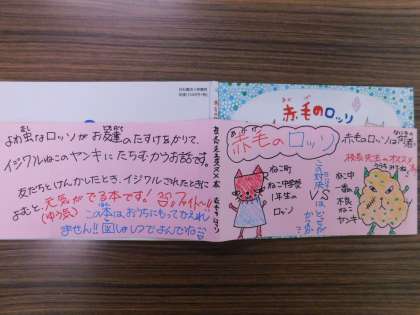 赤毛のロッソ
よわ虫なロッソがお友達のたすけをかりて、
イジワルねこのヤンキにたちむかうお話です。
友だちとけんかしたとき、イジワルされたときに
よむと、元気がでる本です!ファイト!!
(ゆう気)この本は、おうちにもってかえれ
ません!!図しょしつでよんでね
あかげ
赤毛のロッソ
ねこ町
ねこ中学校
1年生の
ロッソ
この対決は、どっちが
VS
赤毛のロッソは何者
なにもの
校長先生のオススメ
ねこ中
一番の
不良
ねこ
ヤンキ